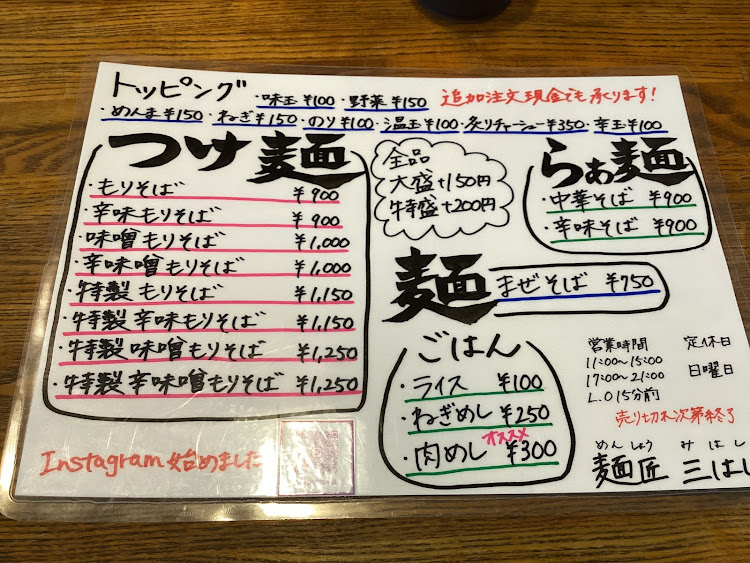 トッピング
・味玉¥100・野菜¥150
追加注文現金でも承ります!
・めんま¥150・ねぎ¥150・のり¥100・温玉¥100・炙りチャーシュー¥350・辛玉¥100
つけ麺
・もりそば ¥900
・辛味もりそば ¥900
・味噌もりそば ¥1,000
・辛味噌もりそば ¥1,000
・特製もりそば ¥1,150
・特製辛味もりそば ¥1,150
・特製味噌もりそば ¥1,250
・特製辛味噌もりそば ¥1,250
全品
大盛+150円
特盛+200円
らぁ麺
・中華そば ¥900
・辛味そば ¥900
麺
まぜそば ¥750
ごはん
・ライス ¥100
・ねぎめし ¥250
オススメ
・肉めし ¥300
営業時間
11:00〜15:00
17:00〜21:00
L.O 15分前
定休日
日曜日
売り切れ次第終了
めんしょう みはし
麺匠 三はし
Instagram始めました